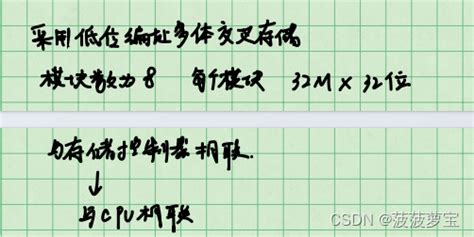 采用低位编址多体交叉存储
模块数为8 每个模块 32M×32位
与存储控制器相联.
↓
与CPU相联
CSDN @菠菠萝宝